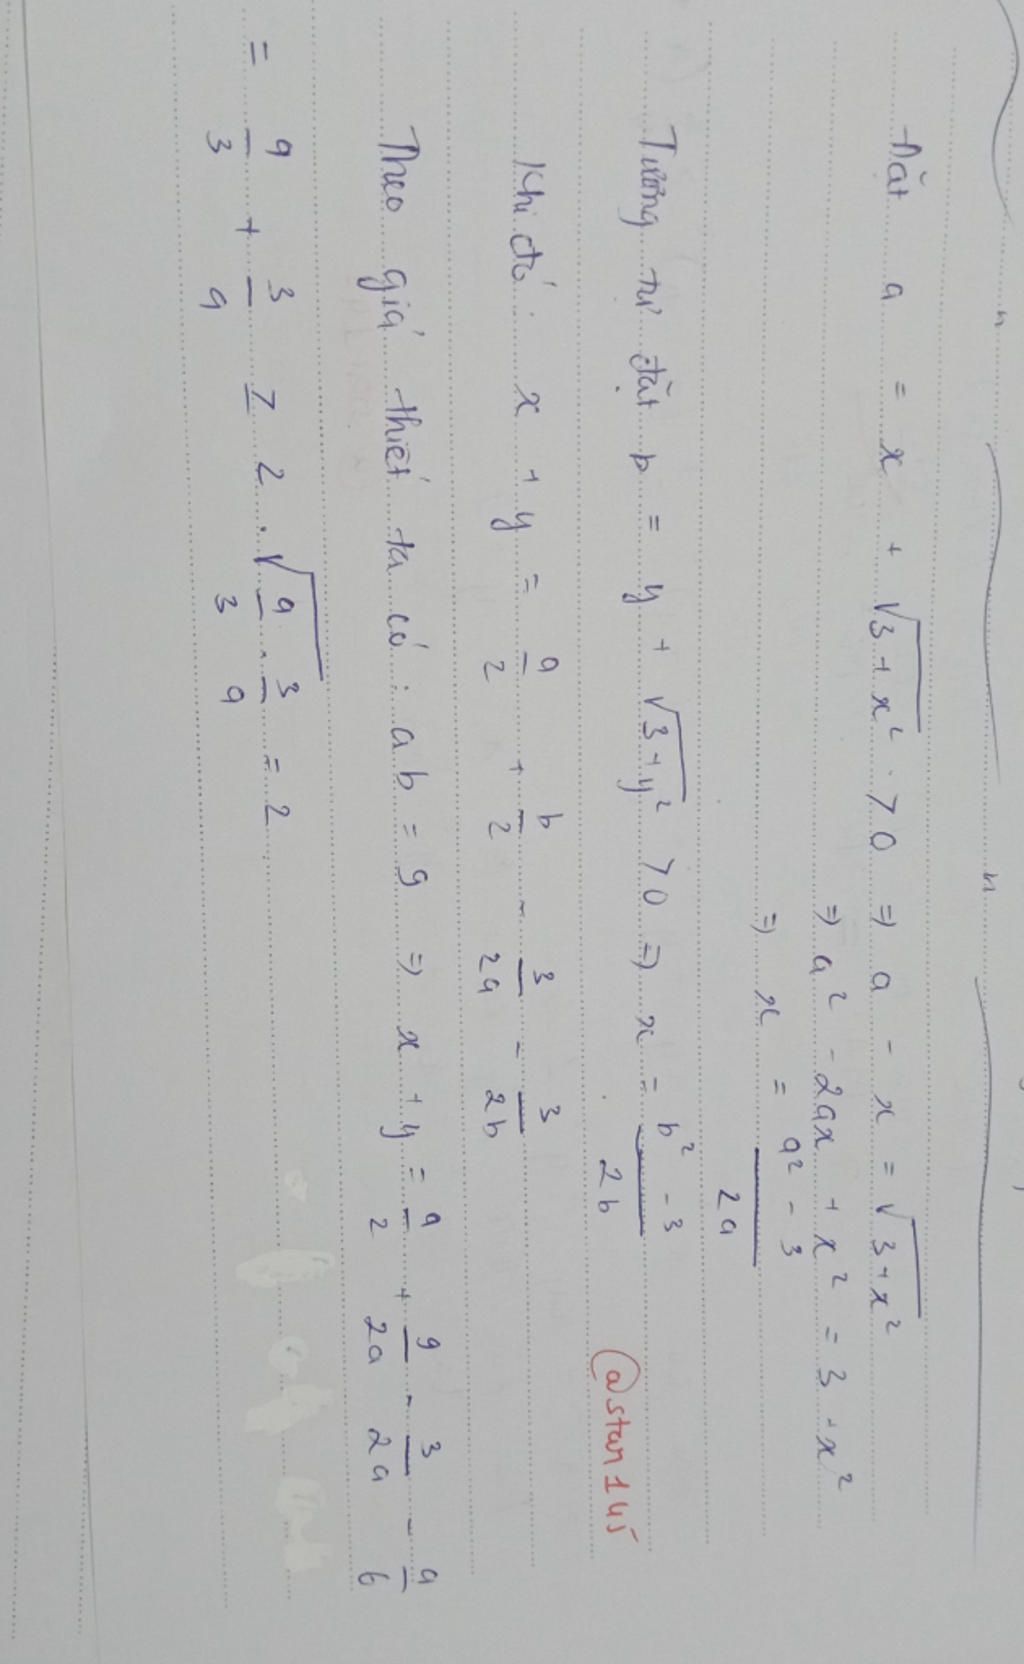 Đặt a = x + √(3+x²) > 0 ⇒ a - x = √(3+x²)
⇒ a² - 2ax + x² = 3 + x²
⇒ x = (a² - 3)/(2a)
Tương tự đặt b = y + √(3+y²) > 0 ⇒ x = (b² - 3)/(2b)
@stan145
Khi đó: x + y = a/2 + b/2 - 3/(2a) - 3/(2b)
Theo giả thiết ta có: ab = 9 ⇒ x + y = a/2 + 9/(2a) - 3/(2a) - a/6
= a/3 + 3/a ≥ 2.√(a/3 . 3/a) = 2